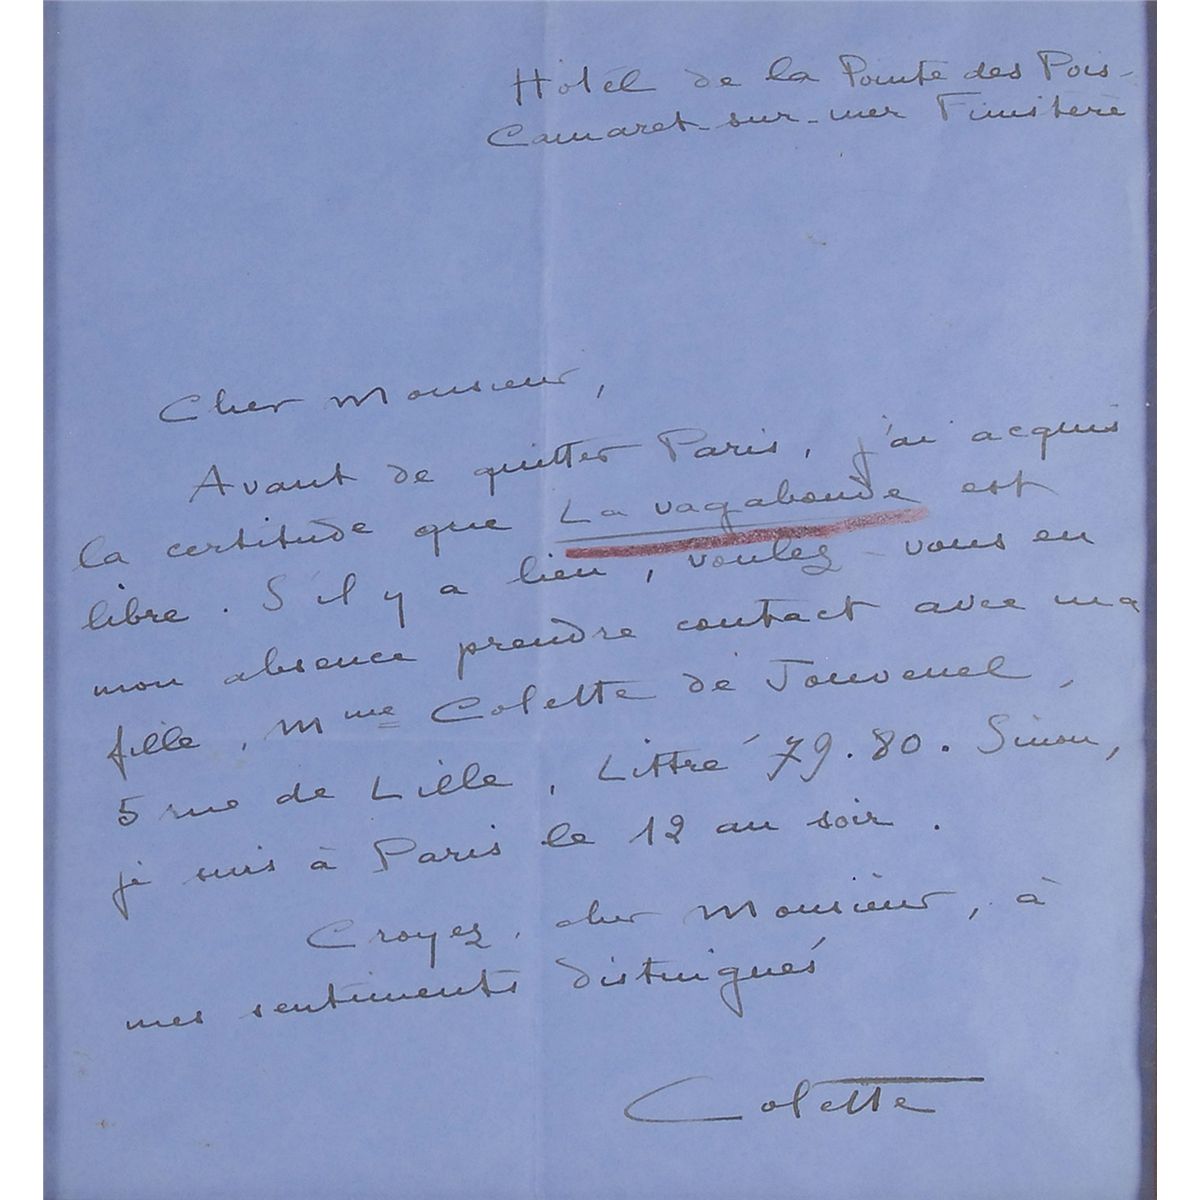 Hôtel de la Pointe des Pois -
Camaret-sur-mer Finistère
Cher Monsieur,
Avant de quitter Paris, j'ai acquis
la certitude que La vagabonde est
libre. S'il y a lieu, voulez-vous en
mon absence prendre contact avec ma
fille, Mme Colette de Jouvenel,
5 rue de Lille, Littré 79.80. Sinon,
je suis à Paris le 12 au soir.
Croyez, cher Monsieur, à
mes sentiments distingués
Colette